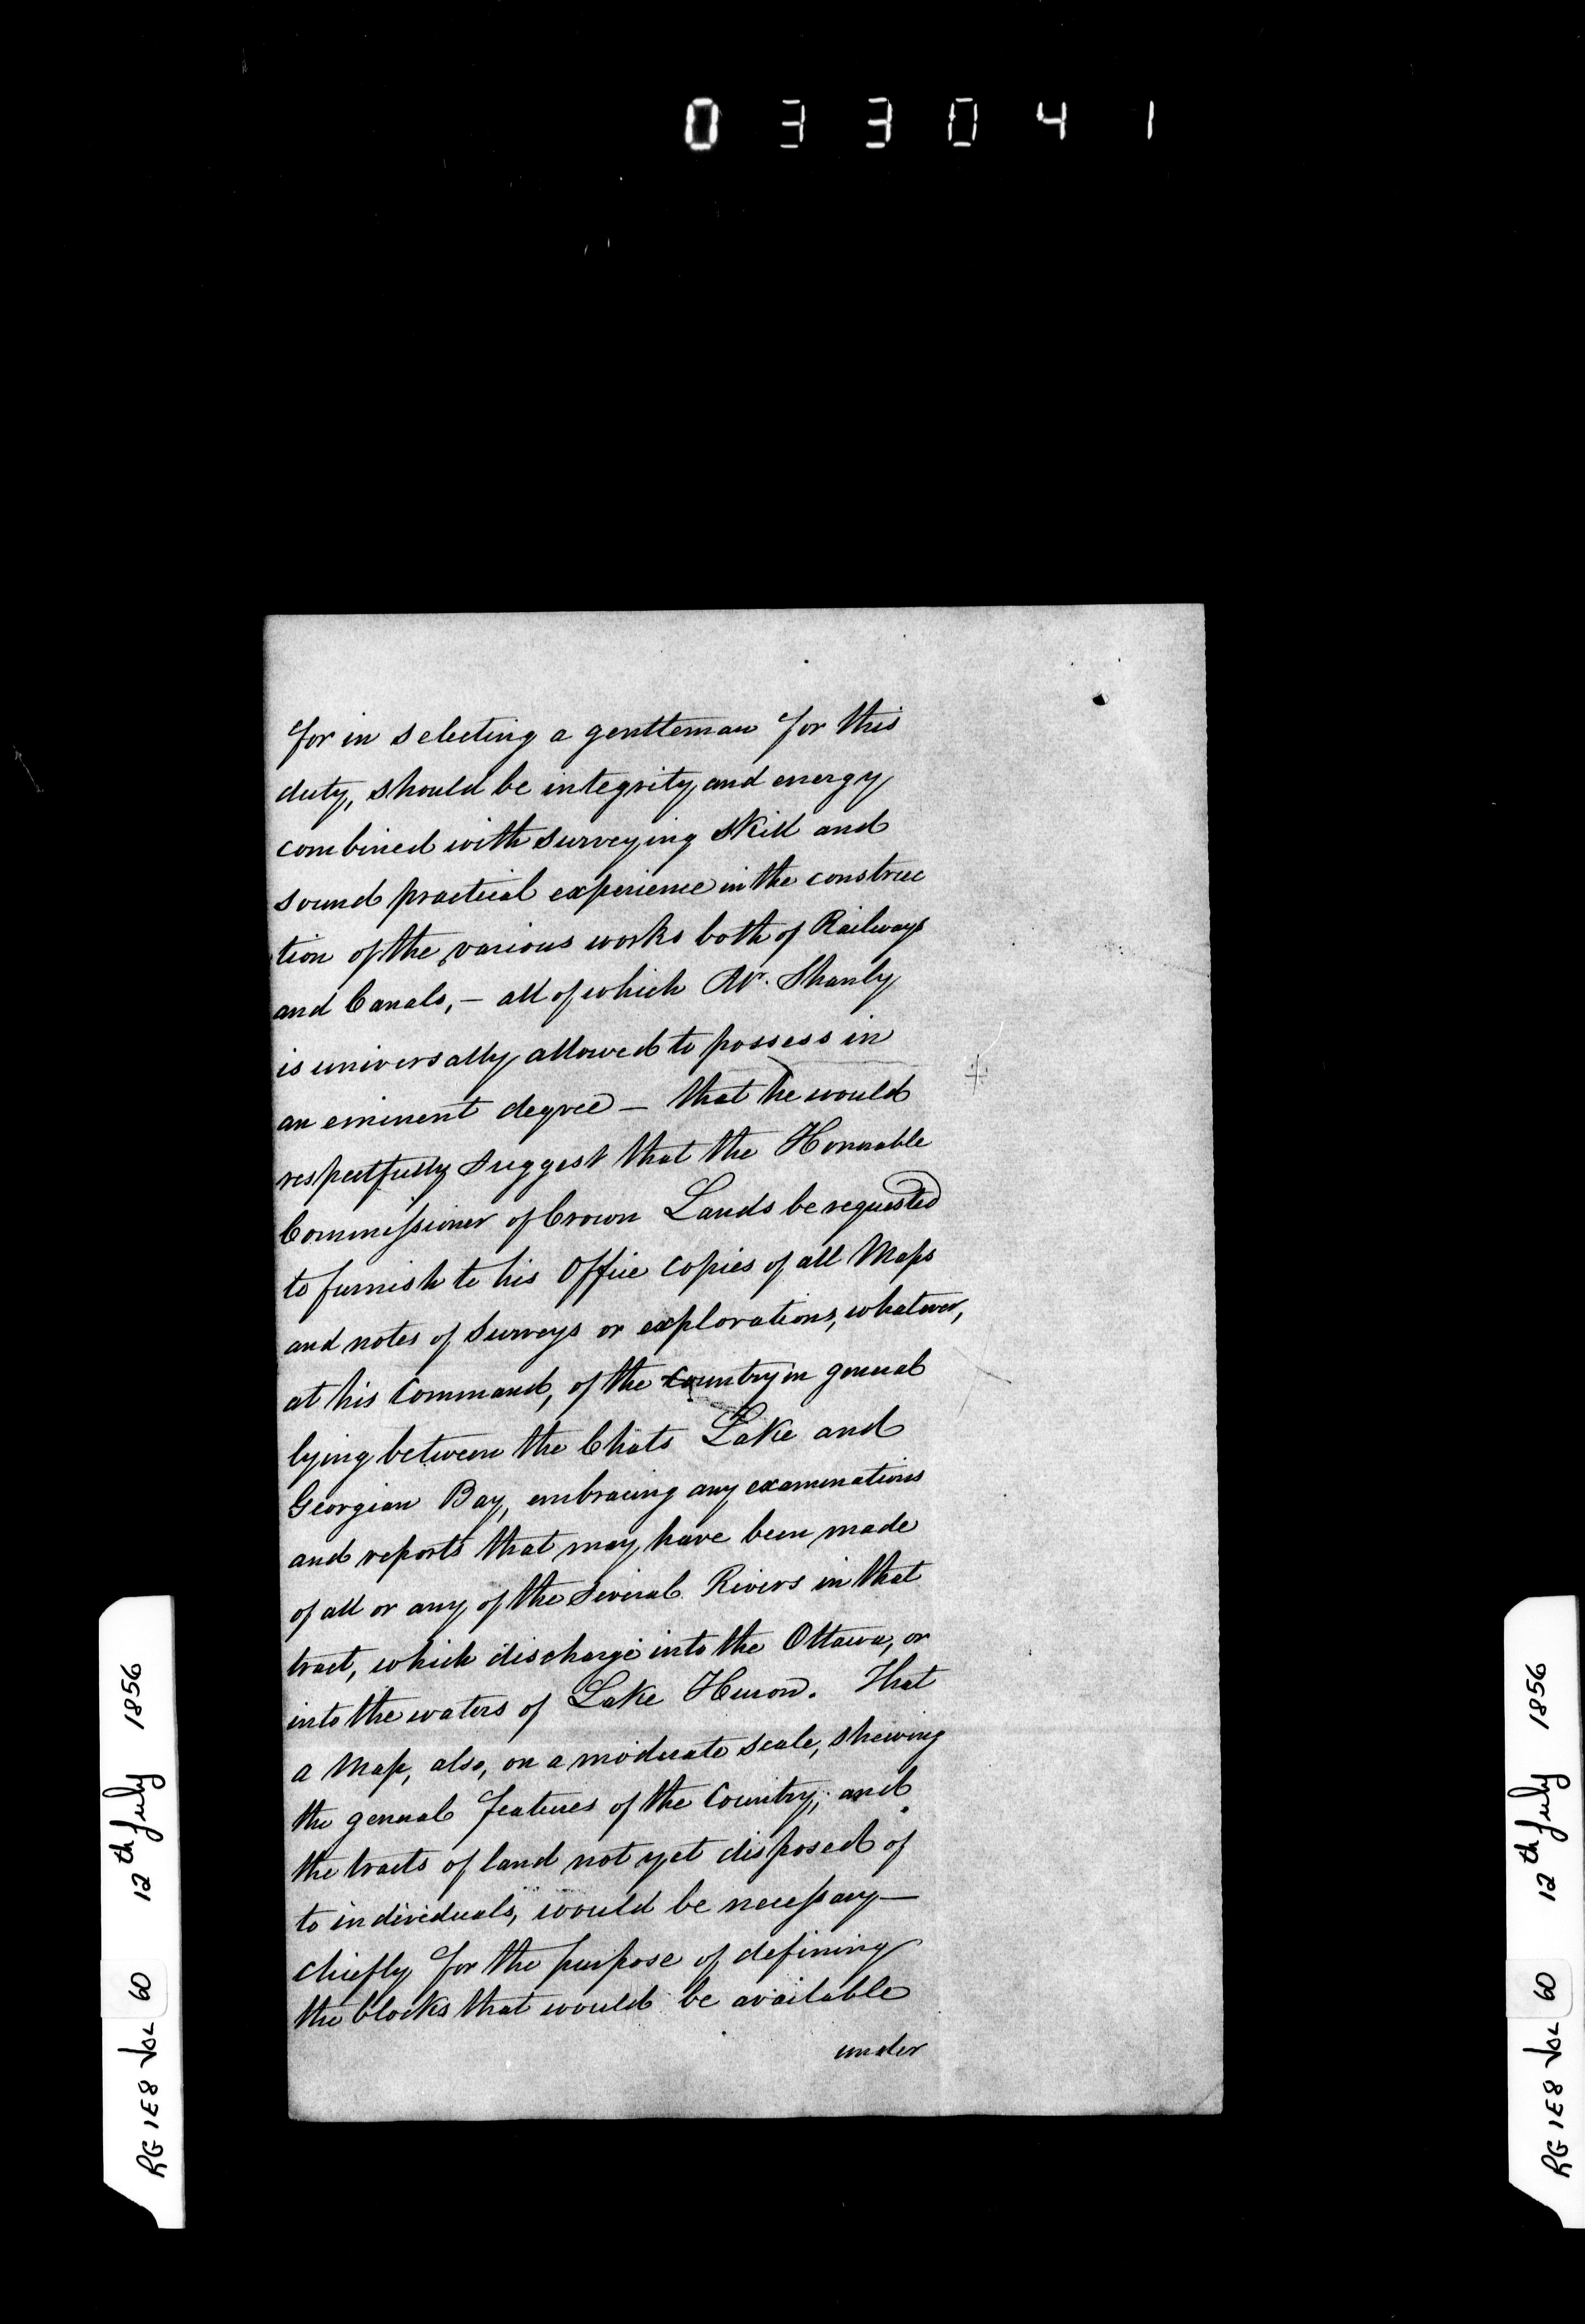 033041
for in selecting a gentleman for this
duty, should be integrity and energy
combined with surveying skill and
sound practical experience in the construc
tion of the various works both of Railways
and Canals, — all of which Mr. Shanly
is universally allowed to possess in
an eminent degree — that he would
respectfully suggest that the Honorable
Commissioner of Crown Lands be requested
to furnish to his Office copies of all Maps
and notes of Surveys or explorations, whatever,
at his command, of the country in general
lying between the Chats Lake and
Georgian Bay, embracing any examinations
and reports that may have been made
of all or any of the several Rivers in that
tract, which discharge into the Ottawa, or
into the waters of Lake Huron. That
a Map, also, on a moderate scale, shewing
the general features of the Country, and
the tracts of land not yet disposed of
to individuals, would be necessary —
chiefly for the purpose of defining
the blocks that would be available
under
RG 1E8 Vol 60 12th July 1856
RG 1E8 Vol 60 12th July 1856